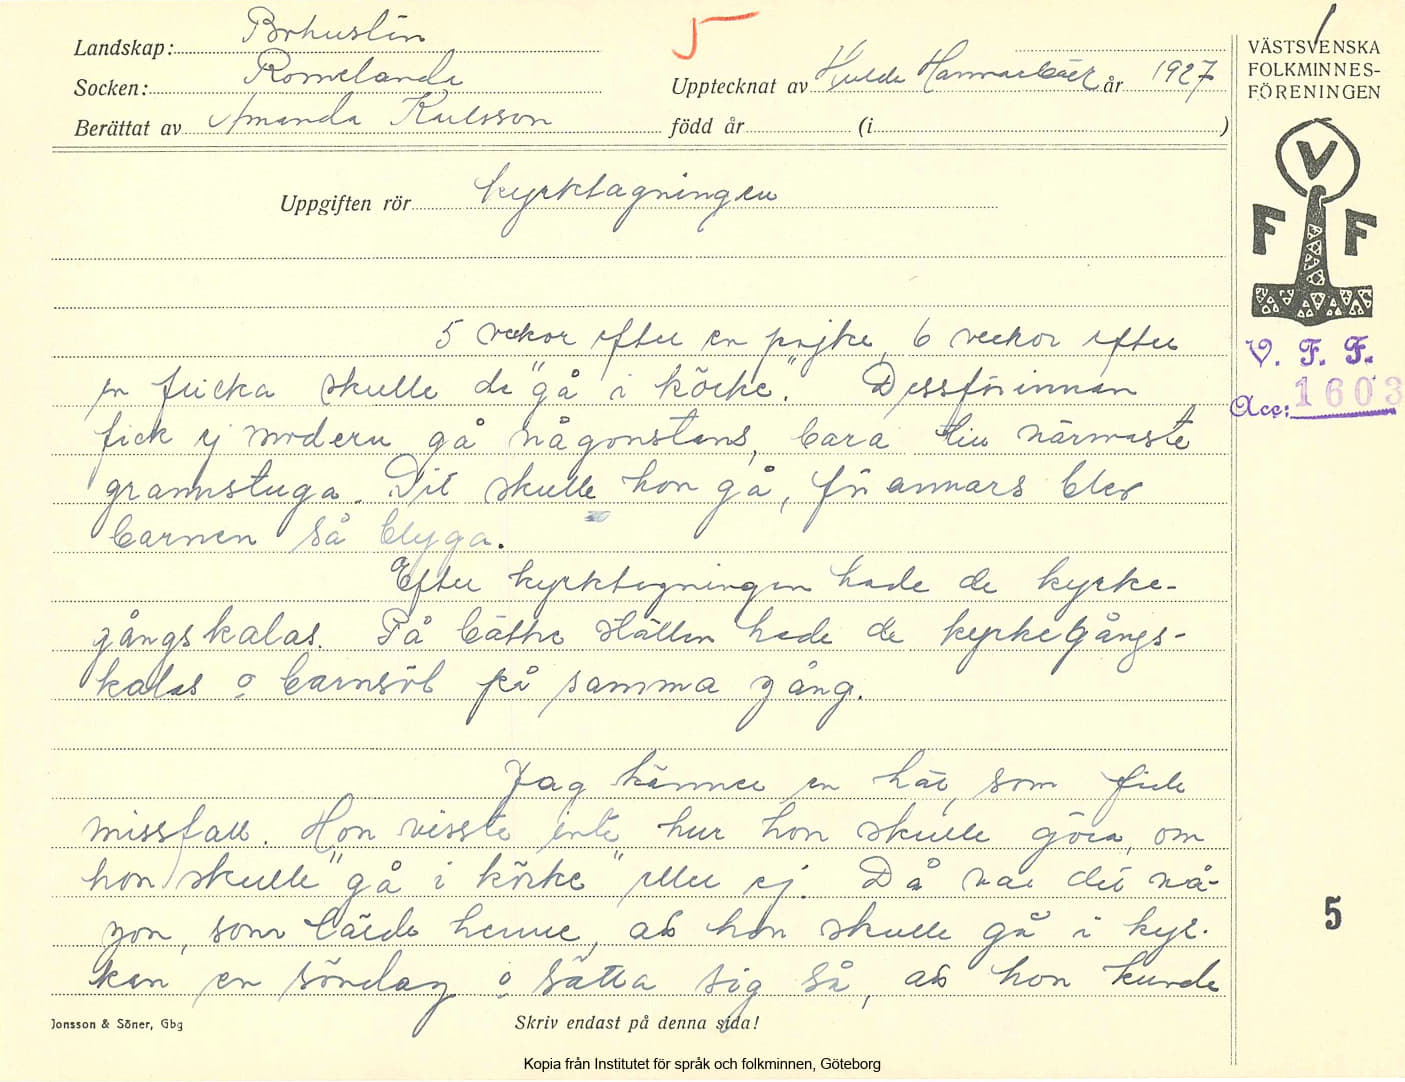 5
Landskap: Bohuslän
Socken: Romelanda
Upptecknat av Hulda Hammarbäck år 1927
Berättat av Amanda Karlsson född år (i )
Uppgiften rör kyrktagningen
5 veckor efter en pojke, 6 veckor efter
en flicka skulle de "gå i körke". Dessförinnan
fick ej modern gå någonstans, bara till närmaste
grannstuga. Dit skulle hon gå, för annars blev
barnen så blyga.
Efter kyrktagningen hade de kyrke-
gångskalas. På bättre ställen hade de kyrkegångs-
kalas o barnsöl på samma gång.
Jag känner en här, som fick
missfall. Hon visste inte hur hon skulle göra, om
hon skulle "gå i körke" eller ej. Då var det nå-
gon, som lärde henne, att hon skulle gå i kyr-
kan en söndag o sätta sig så, att hon kunde
Jonsson & Söner, Gbg
Skriv endast på denna sida!
VÄSTSVENSKA
FOLKMINNES-
FÖRENINGEN
V
F F
V. F. F.
Acc: 1603
5
Kopia från Institutet för språk och folkminnen, Göteborg